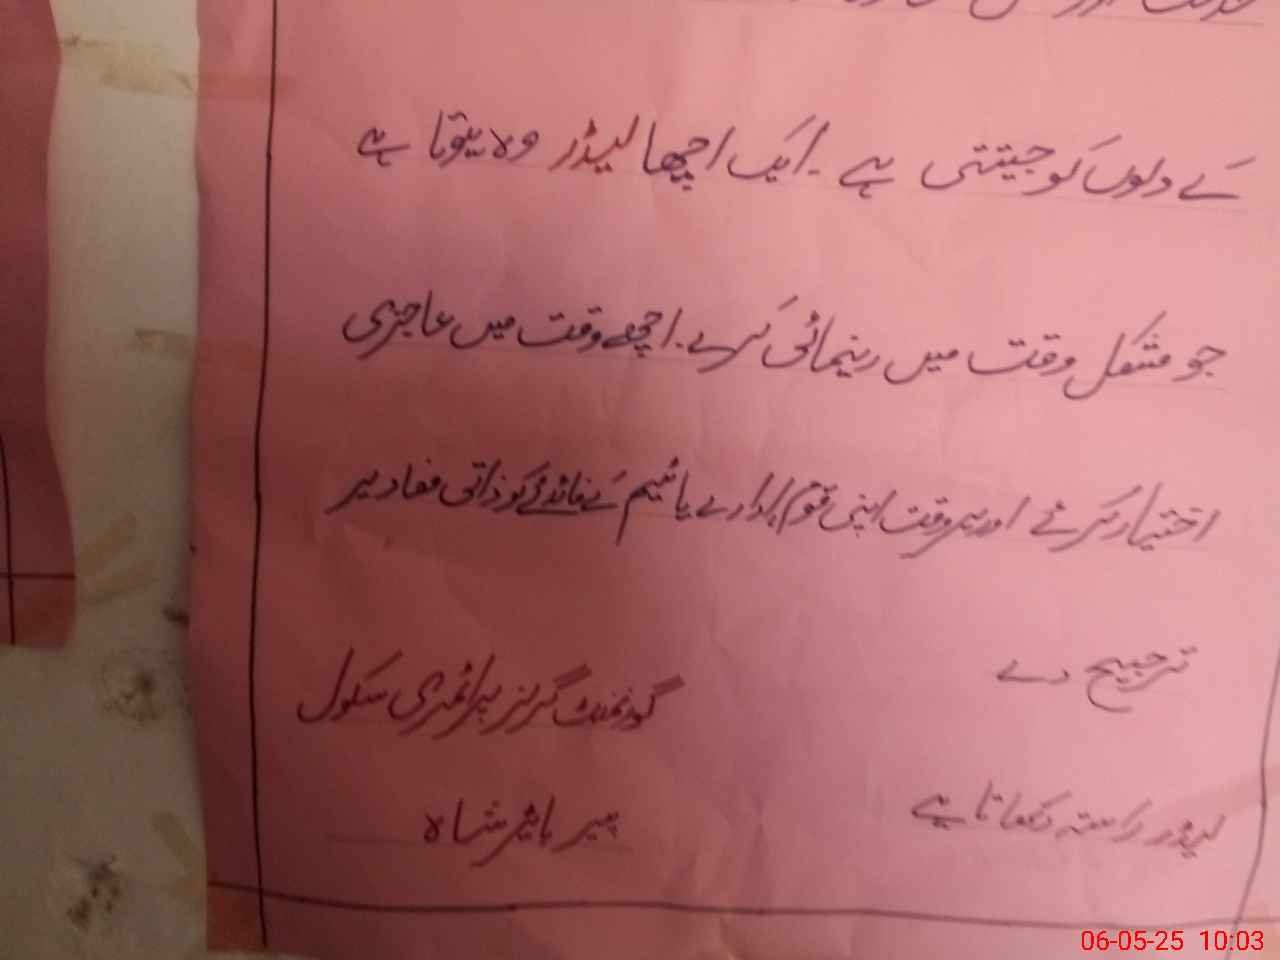 کے دلوں کو جیتتی ہے ۔ ایک اچھا لیڈر وہ ہوتا ہے
جو مشکل وقت میں رہنمائی کرے ۔ اچھے وقت میں عاجزی
اختیار کرے اور ہر وقت اپنی قوم ادارے یا ٹیم کے فائدے کو ذاتی مفاد پر
ترجیح دے
گورنمنٹ گرلز پرائمری سکول
لیڈر راستہ دکھاتا ہے
پیر شاہ
06-05-25 10:03